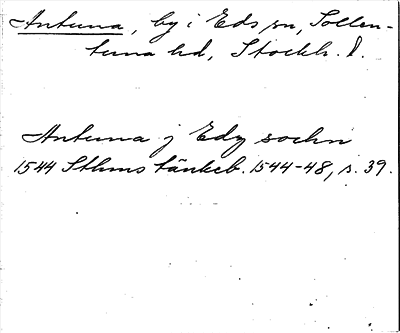 Antuna, by i Eds sn, Sollen-
tuna hd, Stockh. l.
Antuna j Edz sochn
1544 Sthms tänkeb. 1544-48, s. 39.